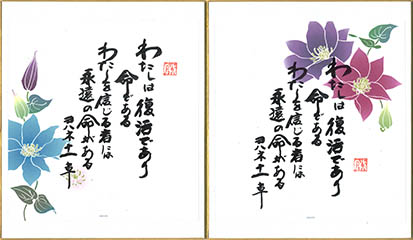 わたしは復活であり
命である
わたしを信じる者には
永遠の命がある
ヨハネ十一章
わたしは復活であり
命である
わたしを信じる者には
永遠の命がある
ヨハネ十一章